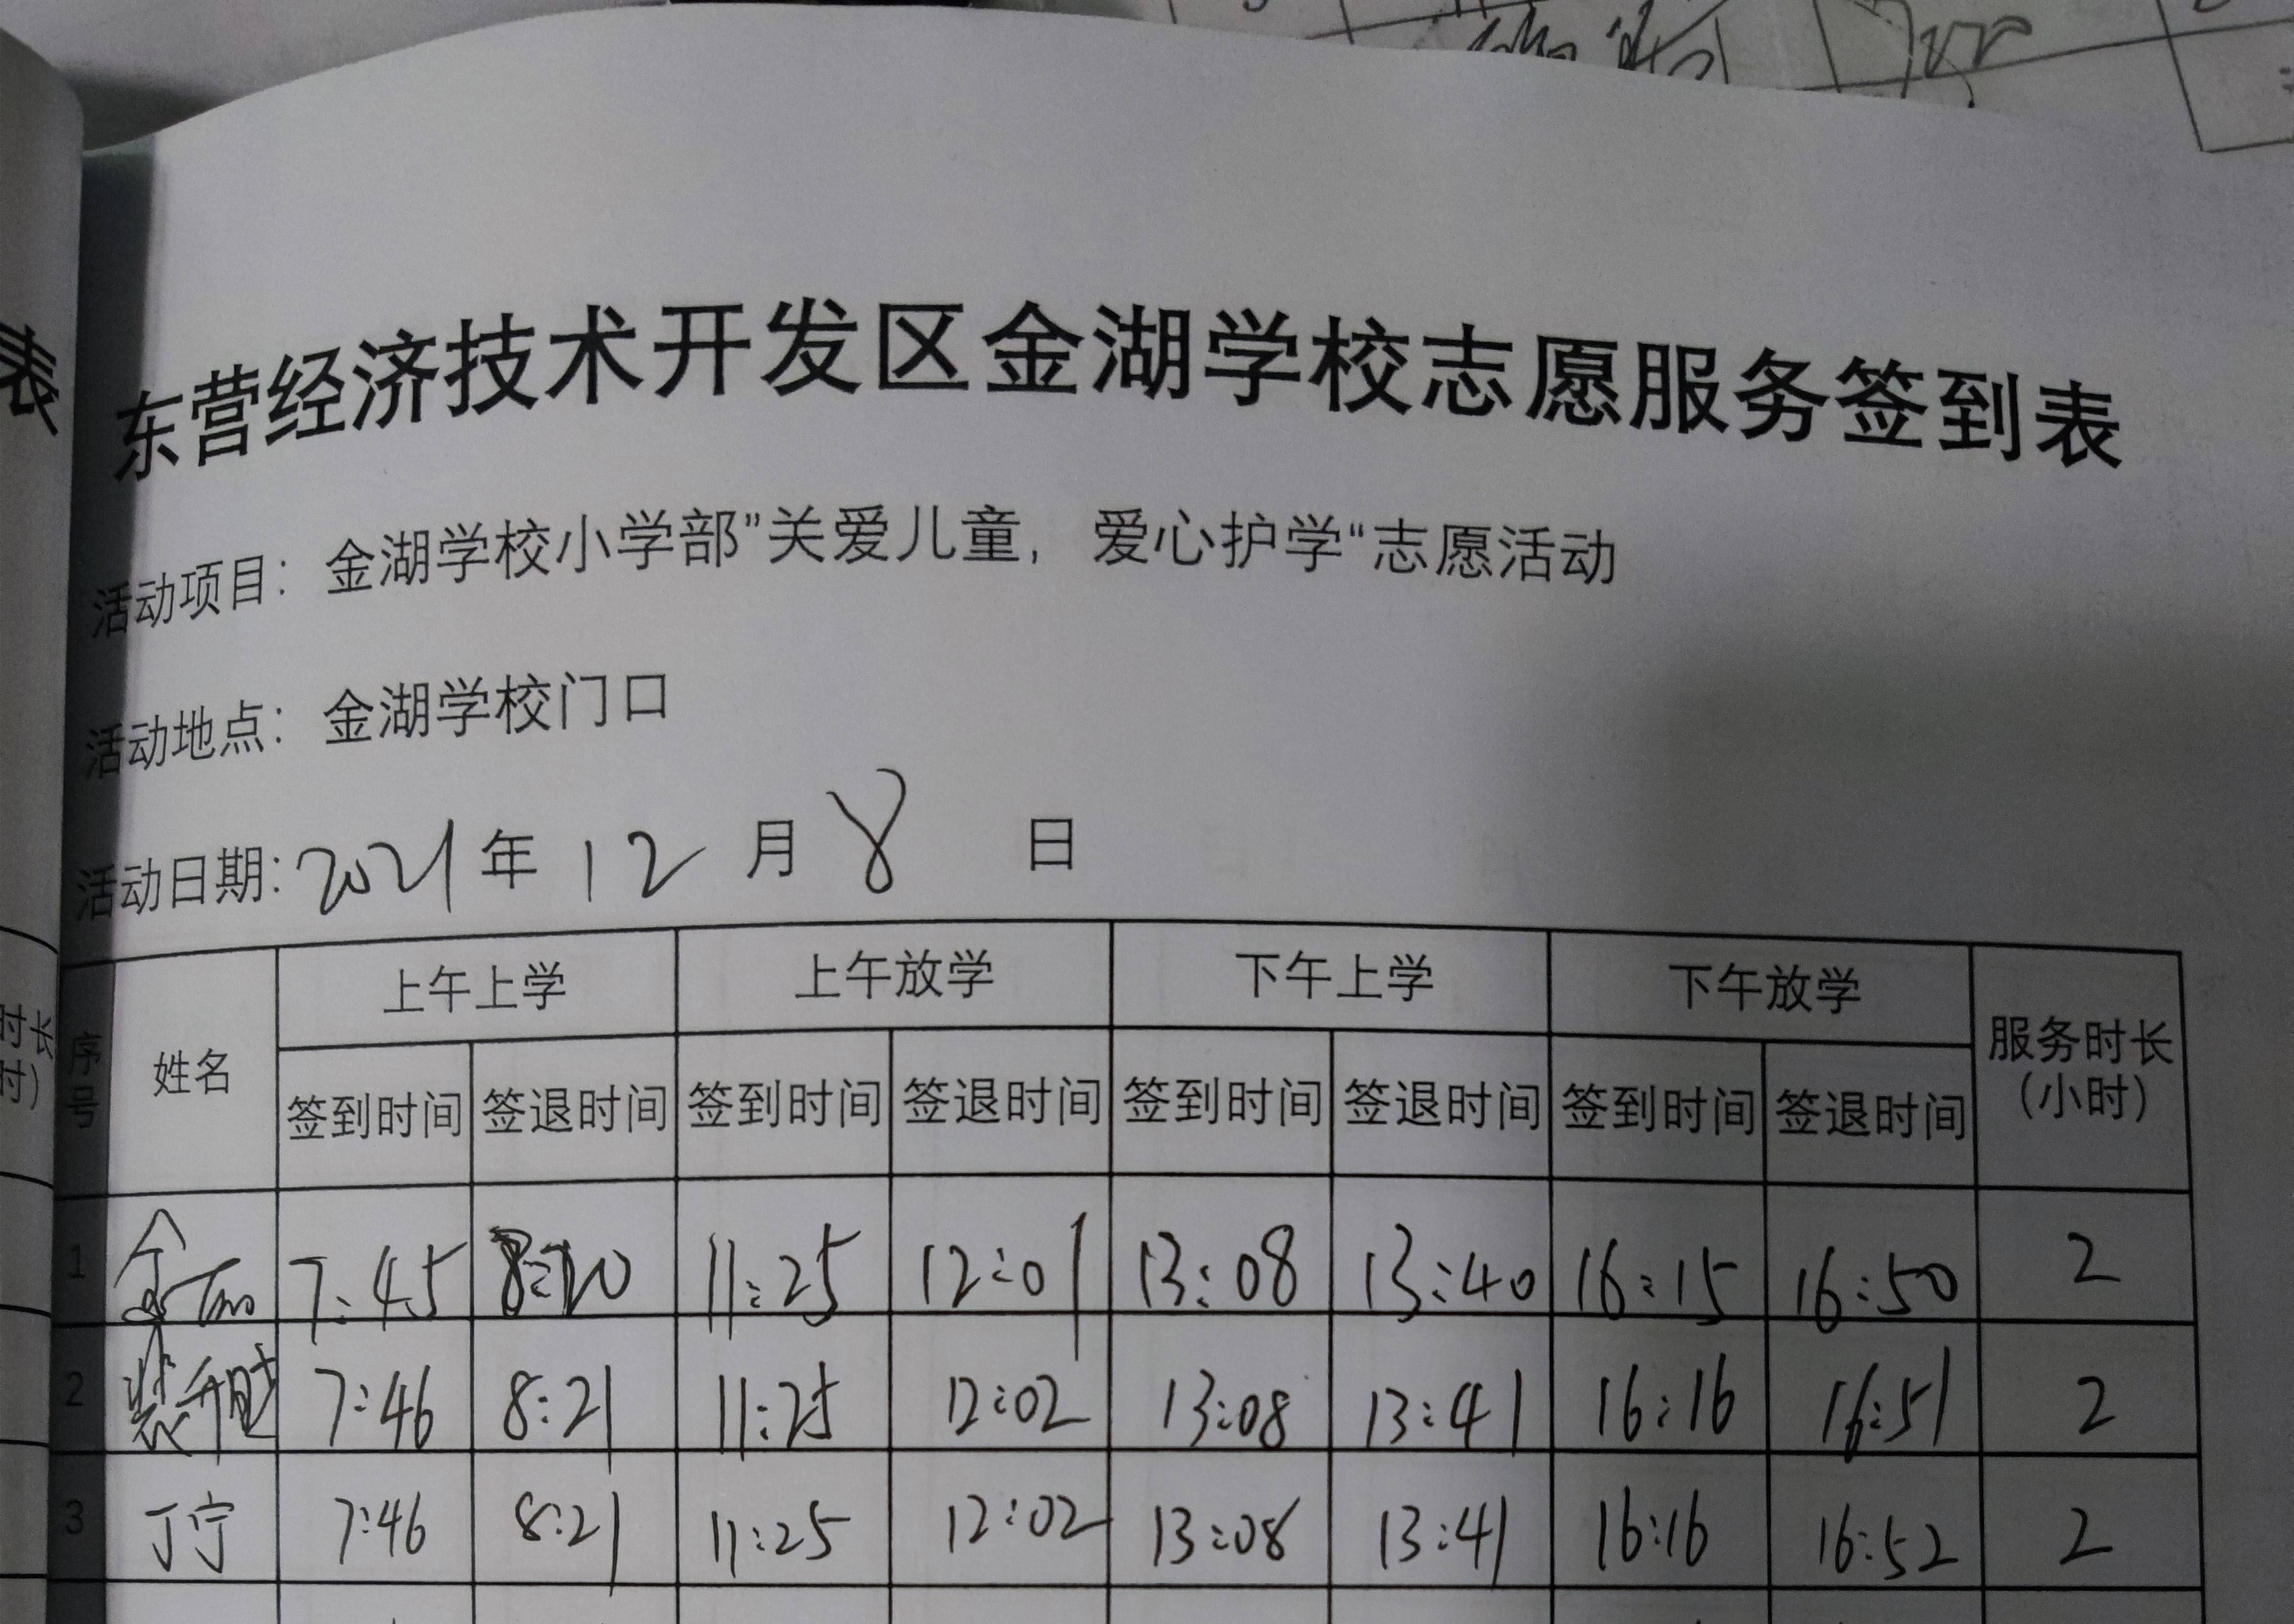 表
东营经济技术开发区金湖学校志愿服务签到表
活动项目：金湖学校小学部”关爱儿童，爱心护学“志愿活动
活动地点：金湖学校门口
活动日期:2021年 12 月 8 日
时长
时）
序号 姓名 上午上学 上午放学 下午上学 下午放学 服务时长（小时）
签到时间 签退时间 签到时间 签退时间 签到时间 签退时间 签到时间 签退时间
1 7:45 8:20 11:25 12:01 13:08 13:40 16:15 16:50 2
2 7:46 8:21 11:25 12:02 13:08 13:41 16:16 16:51 2
3 丁宁 7:46 8:21 11:25 12:02 13:08 13:41 16:16 16:52 2